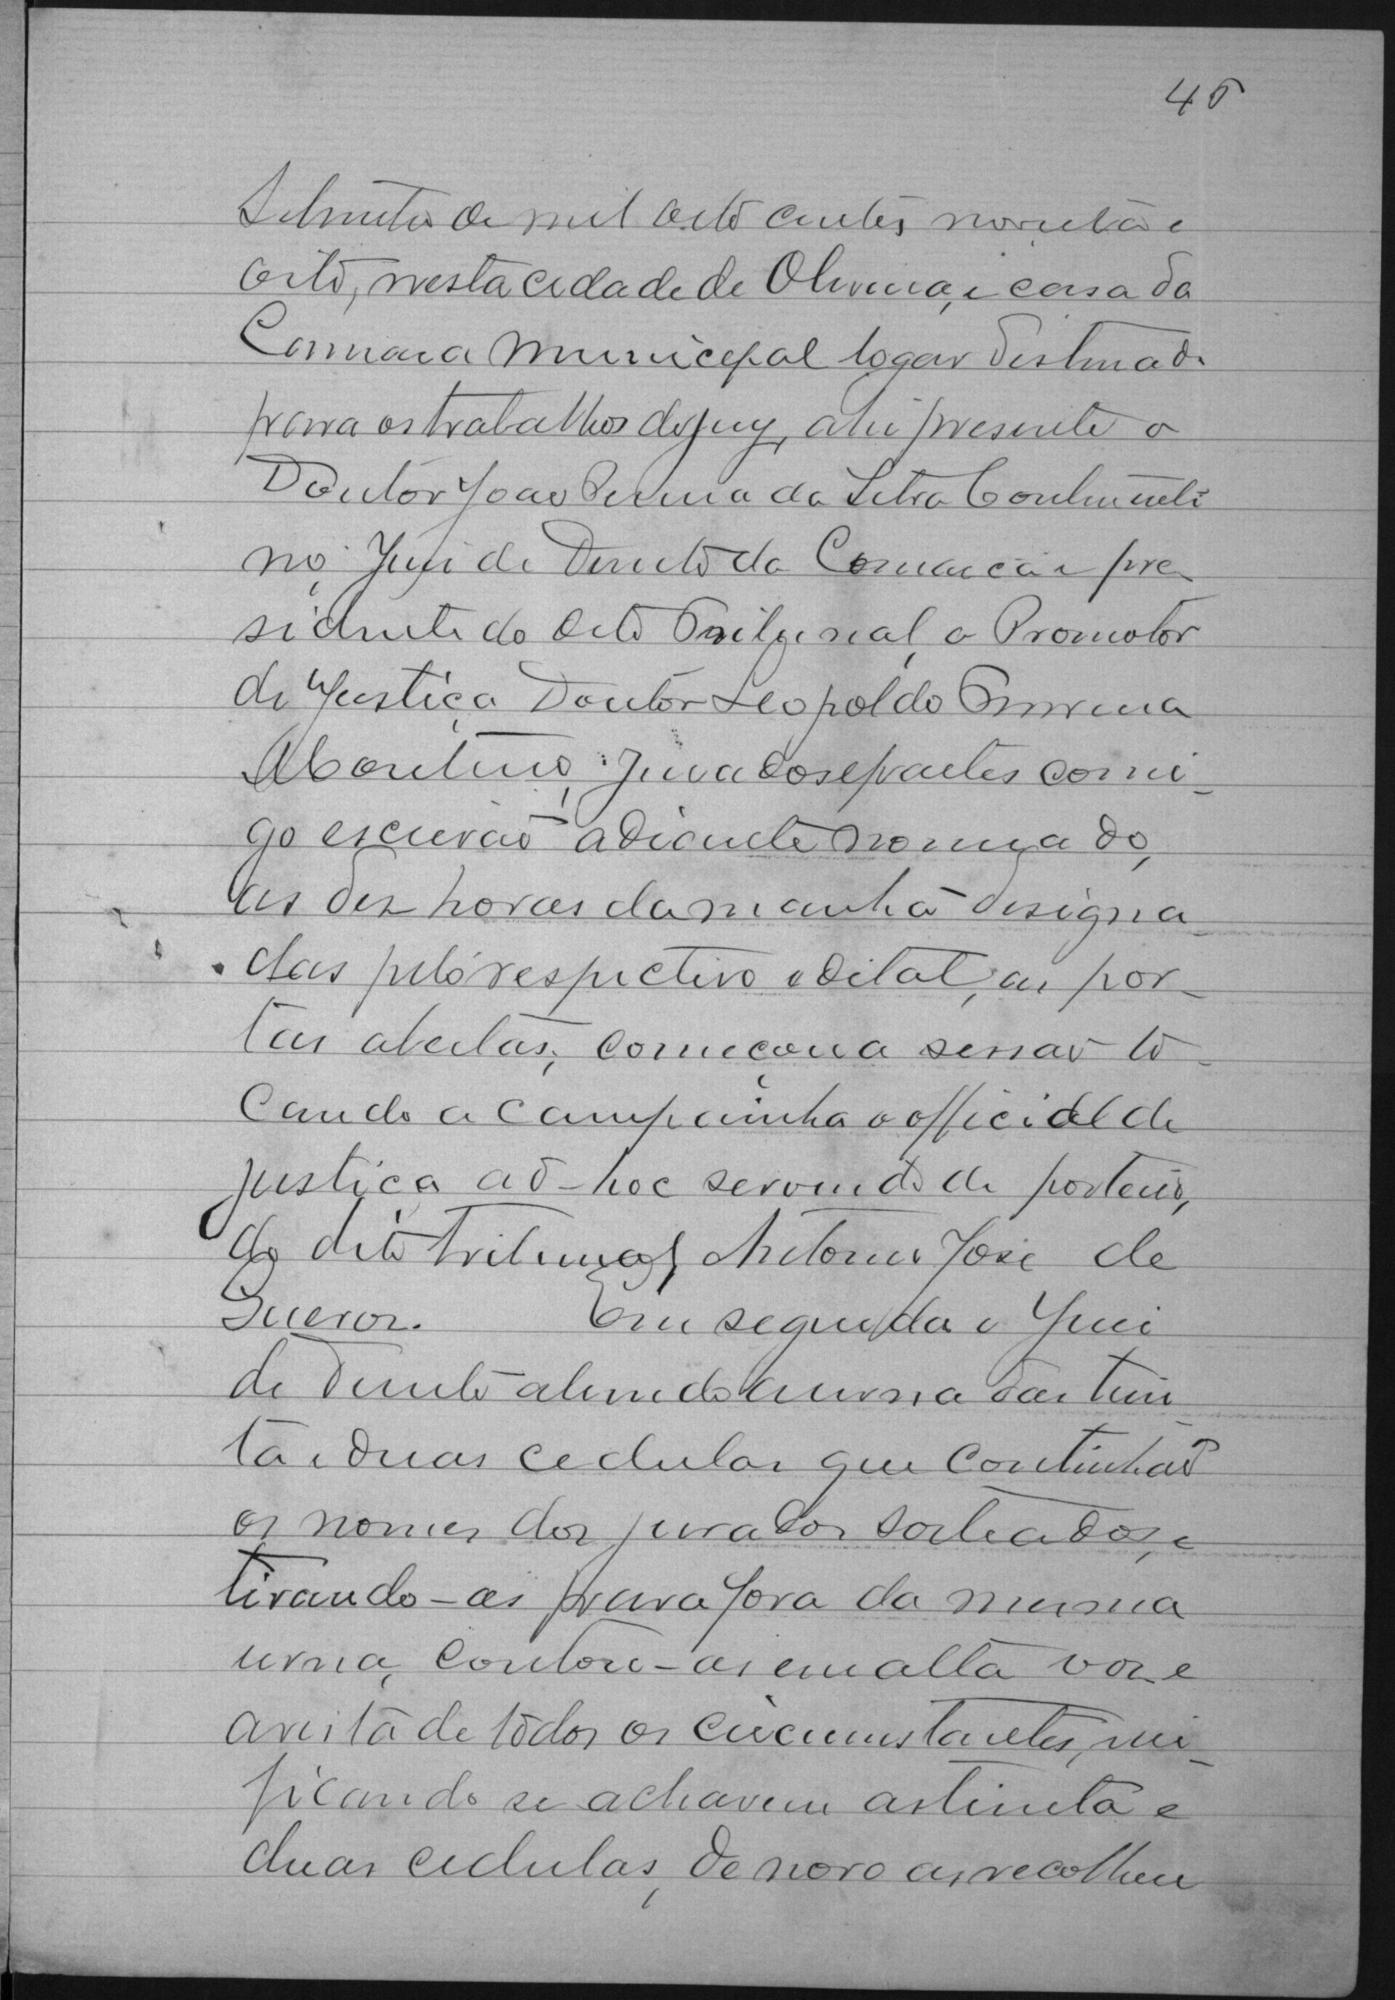 45
Setembro de mil oito centos noventa e
oito, nesta cidade de Oliveira, e casa da
Camara Municipal logar destinado
para os trabalhos do jury, ahi presente o
Doutor João Pereira da Silva Continenti
no, Juiz de Direito da Comarca e pre
sidente do dito Tribunal, o Promotor
de Justiça Doutor Leopoldo Ferreira
Monteiro, jurados e partes comi-
go escrivão adiante nomeado,
as dez horas da manhã designa
das pelo respectivo edital, as por-
tas abertas, começou a sessão to-
cando a campainha o official de
justiça ad-hoc servindo de porteiro,
do dito tribunal, Antonio José de
Queiroz. Em seguida o Juiz
de Direito abrindo a urna das trin
ta e duas cedulas que continhão
os nomes dos jurados sorteados, e
tirando-as para fora da mesma
urna, contou-as em alta voz e
a vista de todos os circumstantes, veri-
ficando se acharem as trinta e
duas cedulas, de novo as recolheu